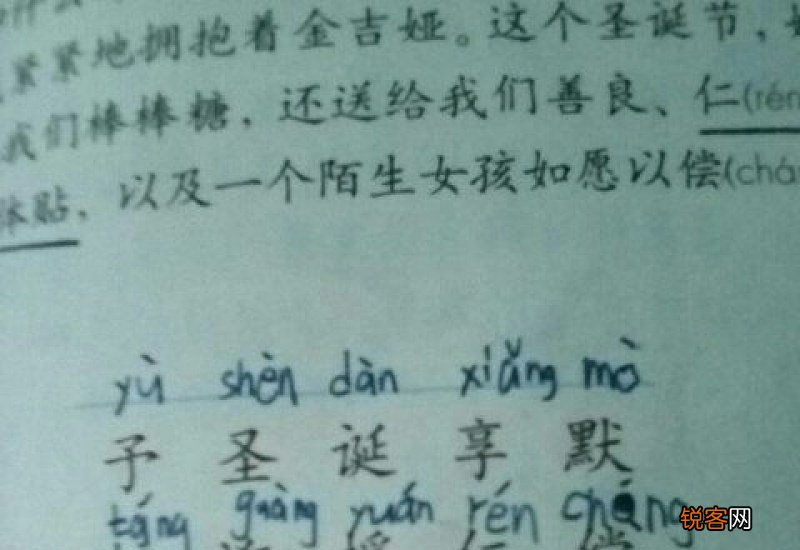 紧紧地拥抱着金吉娅。这个圣诞节，
我们棒棒糖，还送给我们善良、仁(rén
体贴，以及一个陌生女孩如愿以偿(chá
yù shèn dàn xiǎng mò
予 圣 诞 享 默
táng guàng yuán rén cháng
仁 偿
锐客网